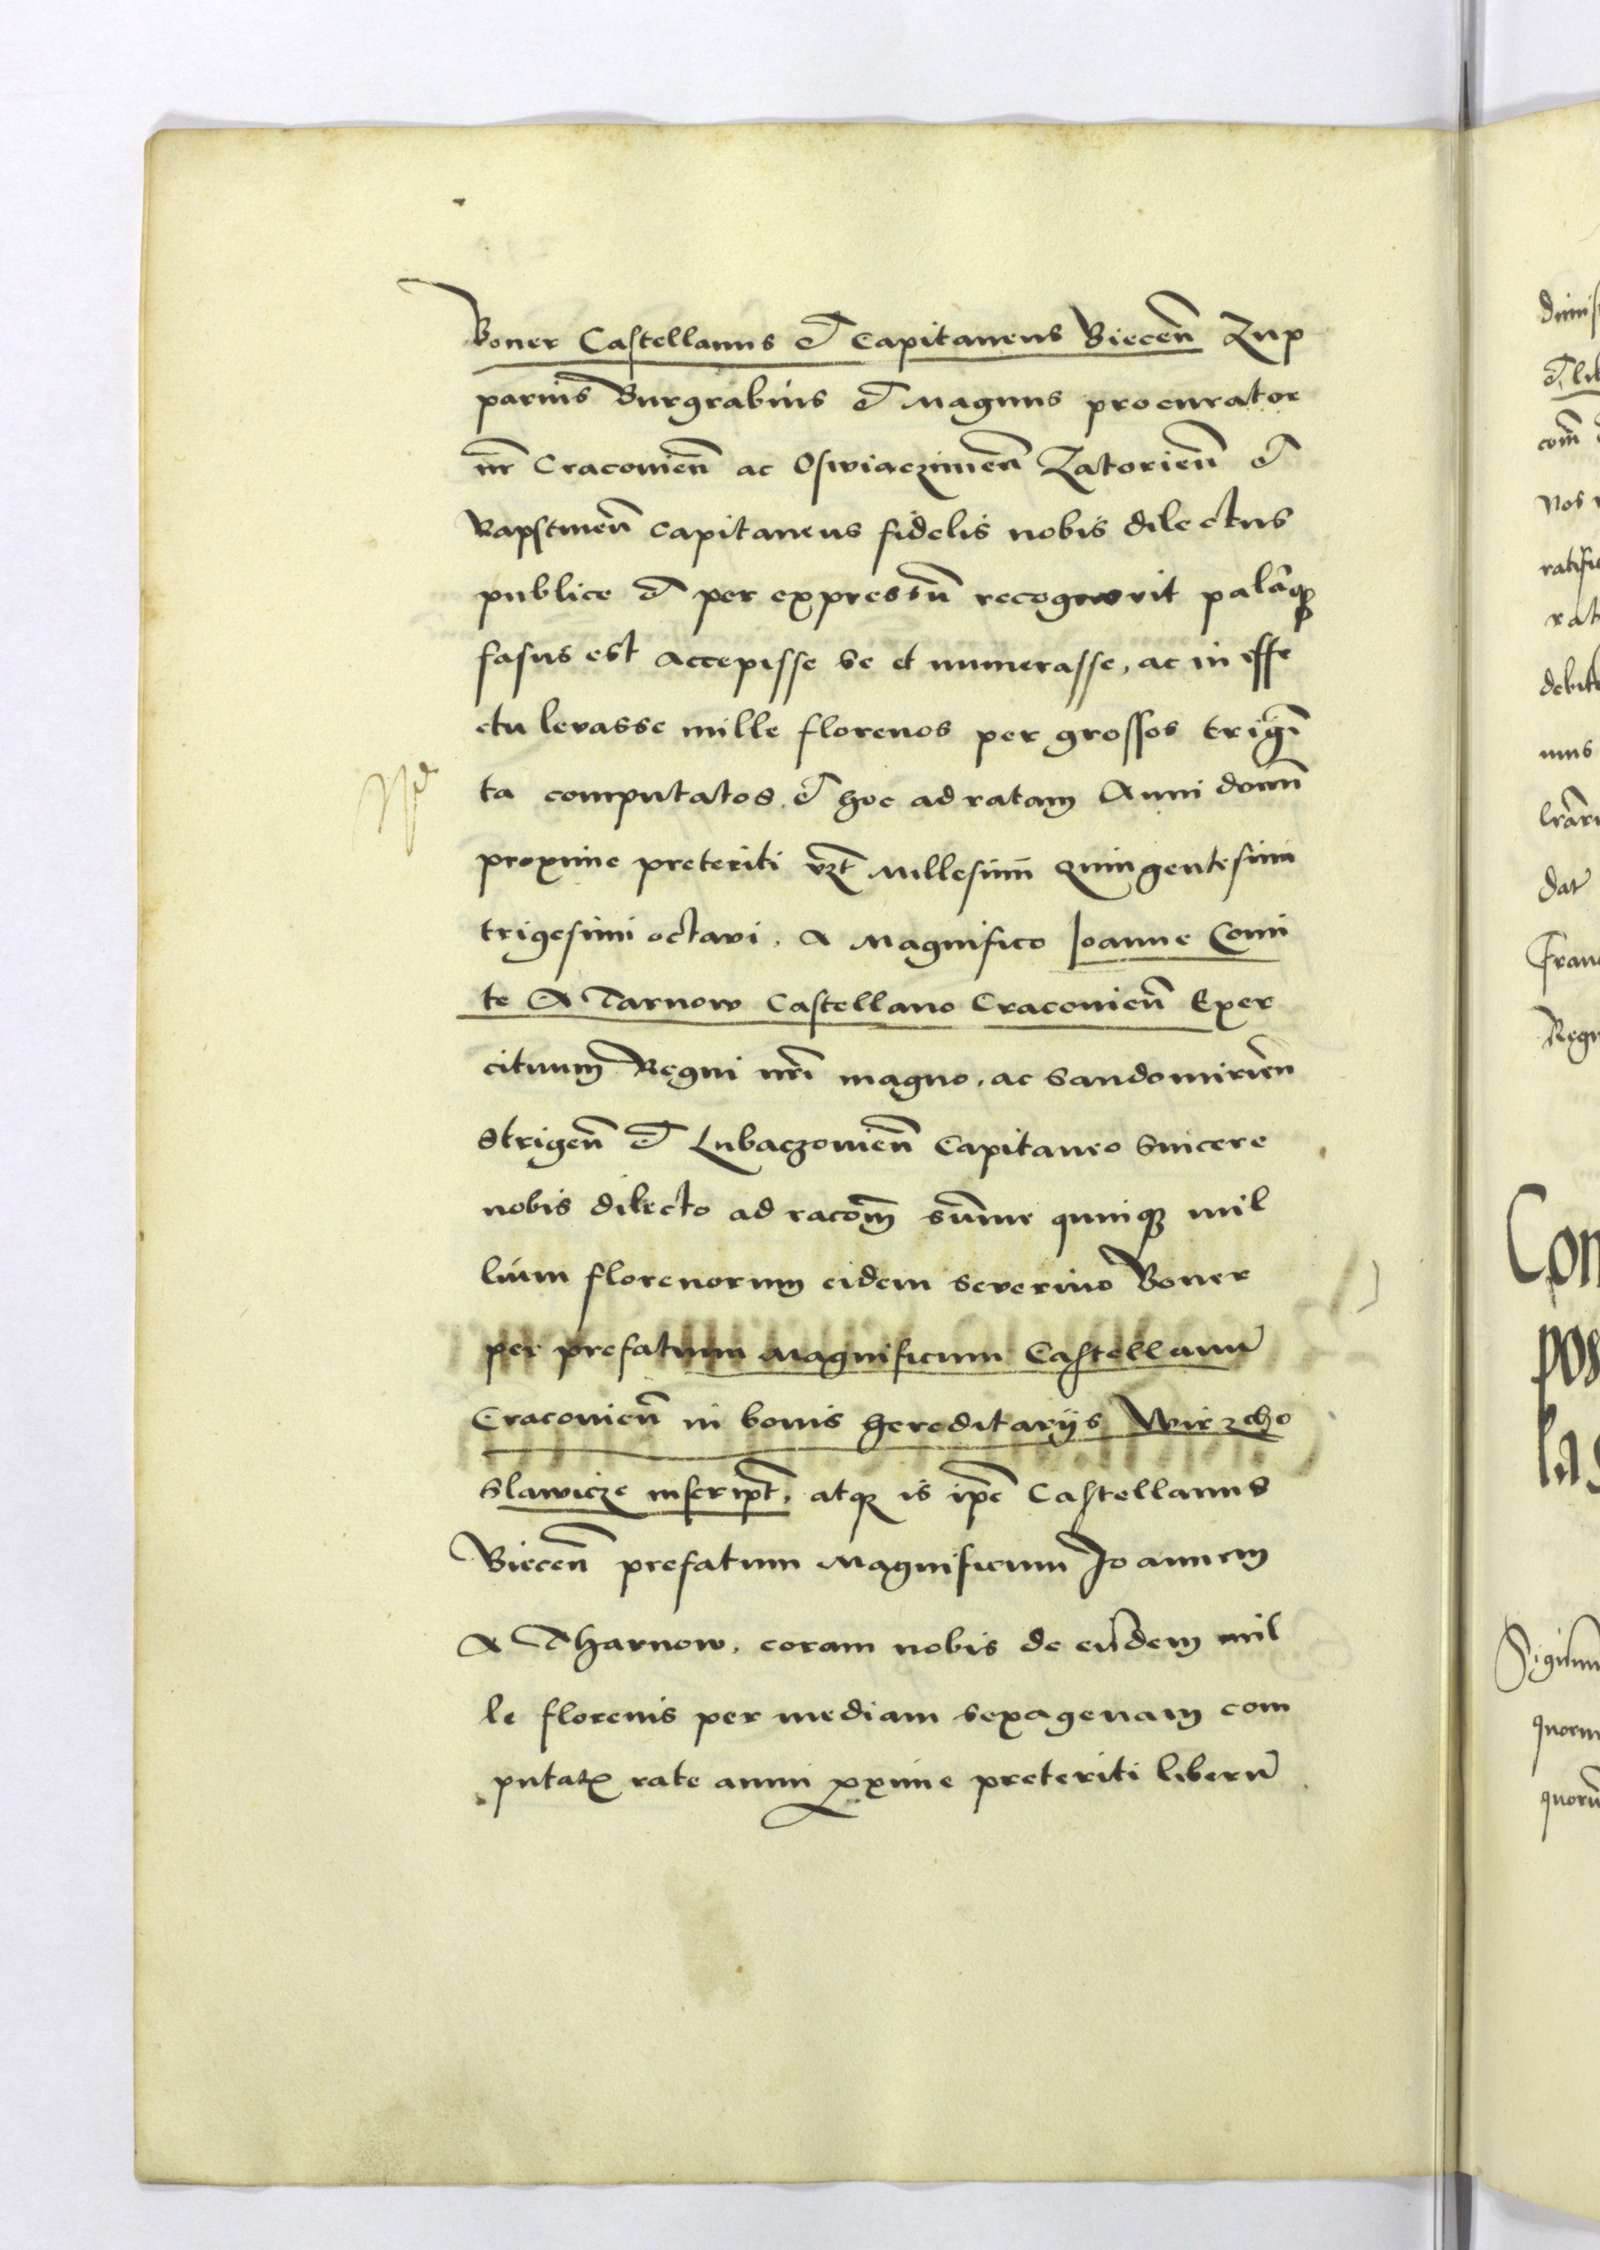 Boner Castellanus et Capitaneus Biecen̄ Zup
parius Burgrabius et Magnus procurator
nr̄ Cracovien̄ ac Oswiaczimen̄ Zatorien̄ et
Rapstinen̄ capitaneus fidelis nobis dilectus
publice et per expressū recognovit palāqȝ
fasus est accepisse se et numerasse, ac in effe
ctu levasse mille florenos per grossos trigī
ta computatos et hoc ad ratam Anni domī
proxime preteriti vz̄t Millesimi Quingentesimi
trigesimi octavi. A Magnifico Joanne Comi
te A Tarnow Castellano Cracovien̄ Exer
cituum Regni nr̄i magno, ac Sandomirien̄
Strigen̄ et Lubaczovien̄ Capitaneo sincere
nobis dilecto ad racōm sūme quinqȝ mil
lium florenorum eidem Severino Boner
per prefatum Magnificum Castellanū
Cracovien̄ in bonis hereditariis Wirzcho
slawicze inscript̄. atqȝ is ip̄e Castellanus
Biecen̄ prefatum Magnificum Joannem
A Tharnow. coram nobis de eiūdem mil
le florenis per mediam sexagenam com
putatꝭ rate anni ꝓxime preteriti liberū
dimis
et lib
com̄
Nos
ratifi
rat
debit
mus
lrār
dat
Fran
Regn
Con
pos
las
Sigism
quorum
quorū